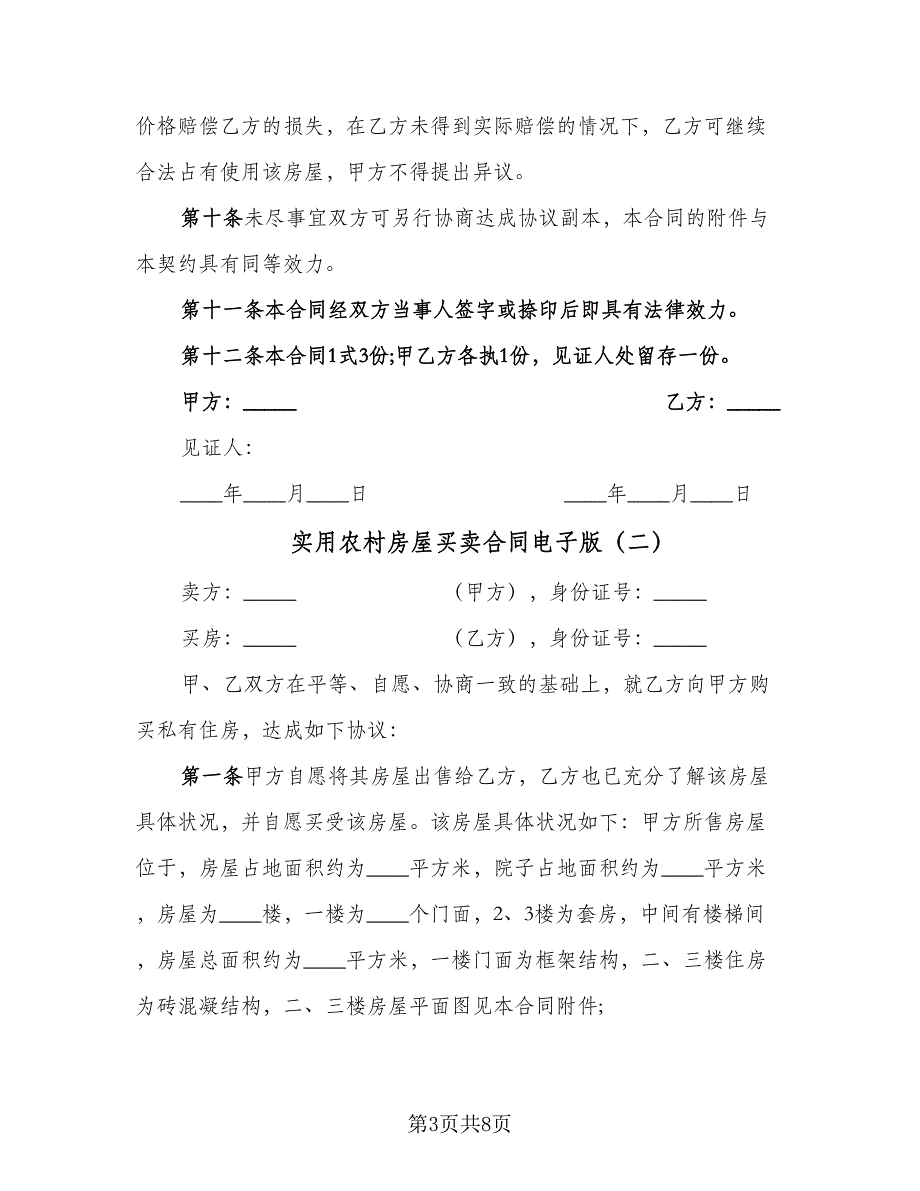 价格赔偿乙方的损失，在乙方未得到实际赔偿的情况下，乙方可继续
合法占有使用该房屋，甲方不得提出异议。
第十条未尽事宜双方可另行协商达成协议副本，本合同的附件与
本契约具有同等效力。
第十一条本合同经双方当事人签字或捺印后即具有法律效力。
第十二条本合同1式3份;甲乙方各执1份，见证人处留存一份。
甲方：_____ 乙方：_____
见证人：
____年____月____日 ____年____月____日
实用农村房屋买卖合同电子版（二）
卖方：_____ （甲方），身份证号：_____
买房：_____ （乙方），身份证号：_____
甲、乙双方在平等、自愿、协商一致的基础上，就乙方向甲方购
买私有住房，达成如下协议：
第一条甲方自愿将其房屋出售给乙方，乙方也已充分了解该房屋
具体状况，并自愿买受该房屋。该房屋具体状况如下：甲方所售房屋
位于，房屋占地面积约为____平方米，院子占地面积约为____平方米
，房屋为____楼，一楼为____个门面，2、3楼为套房，中间有楼梯间
，房屋总面积约为____平方米，一楼门面为框架结构，二、三楼住房
为砖混凝结构，二、三楼房屋平面图见本合同附件;
第3页共8页